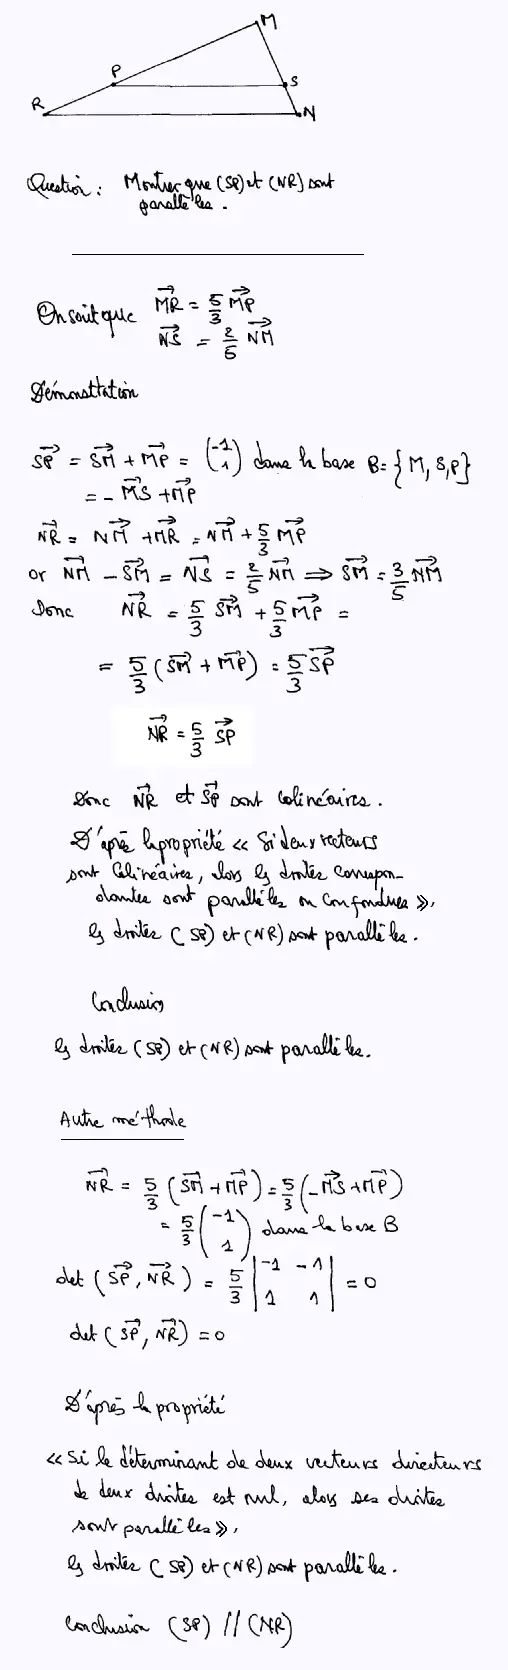 M
P
S
R
N
Question : Montrer que (SP) et (NR) sont
parallèles.
On sait que MR→ = 5/3 MP→
NS→ = 2/5 NM→
Démonstration
SP→ = SM→ + MP→ = (-1 1) dans la base B = {M, S, P}
= - MS→ + MP→
NR→ = NM→ + MR→ = NM→ + 5/3 MP→
or NM→ - SM→ = NS→ = 2/5 NM→ ⇒ SM→ = 3/5 NM→
Donc NR→ = 5/3 SM→ + 5/3 MP→ =
= 5/3 (SM→ + MP→) = 5/3 SP→
NR→ = 5/3 SP→
Donc NR→ et SP→ sont colinéaires.
D'après la propriété « Si deux vecteurs
sont colinéaires, alors les droites correspon-
dantes sont parallèles ou confondues »,
les droites (SP) et (NR) sont parallèles.
Conclusion
les droites (SP) et (NR) sont parallèles.
Autre méthode
NR→ = 5/3 (SM→ + MP→) = 5/3 (-MS→ + MP→)
= 5/3 (-1 1) dans la base B
det (SP→, NR→) = 5/3 |-1 -1 1 1| = 0
det (SP→, NR→) = 0
D'après la propriété
« Si le déterminant de deux vecteurs directeurs
de deux droites est nul, alors ses droites
sont parallèles »,
les droites (SP) et (NR) sont parallèles.
Conclusion (SP) // (NR)